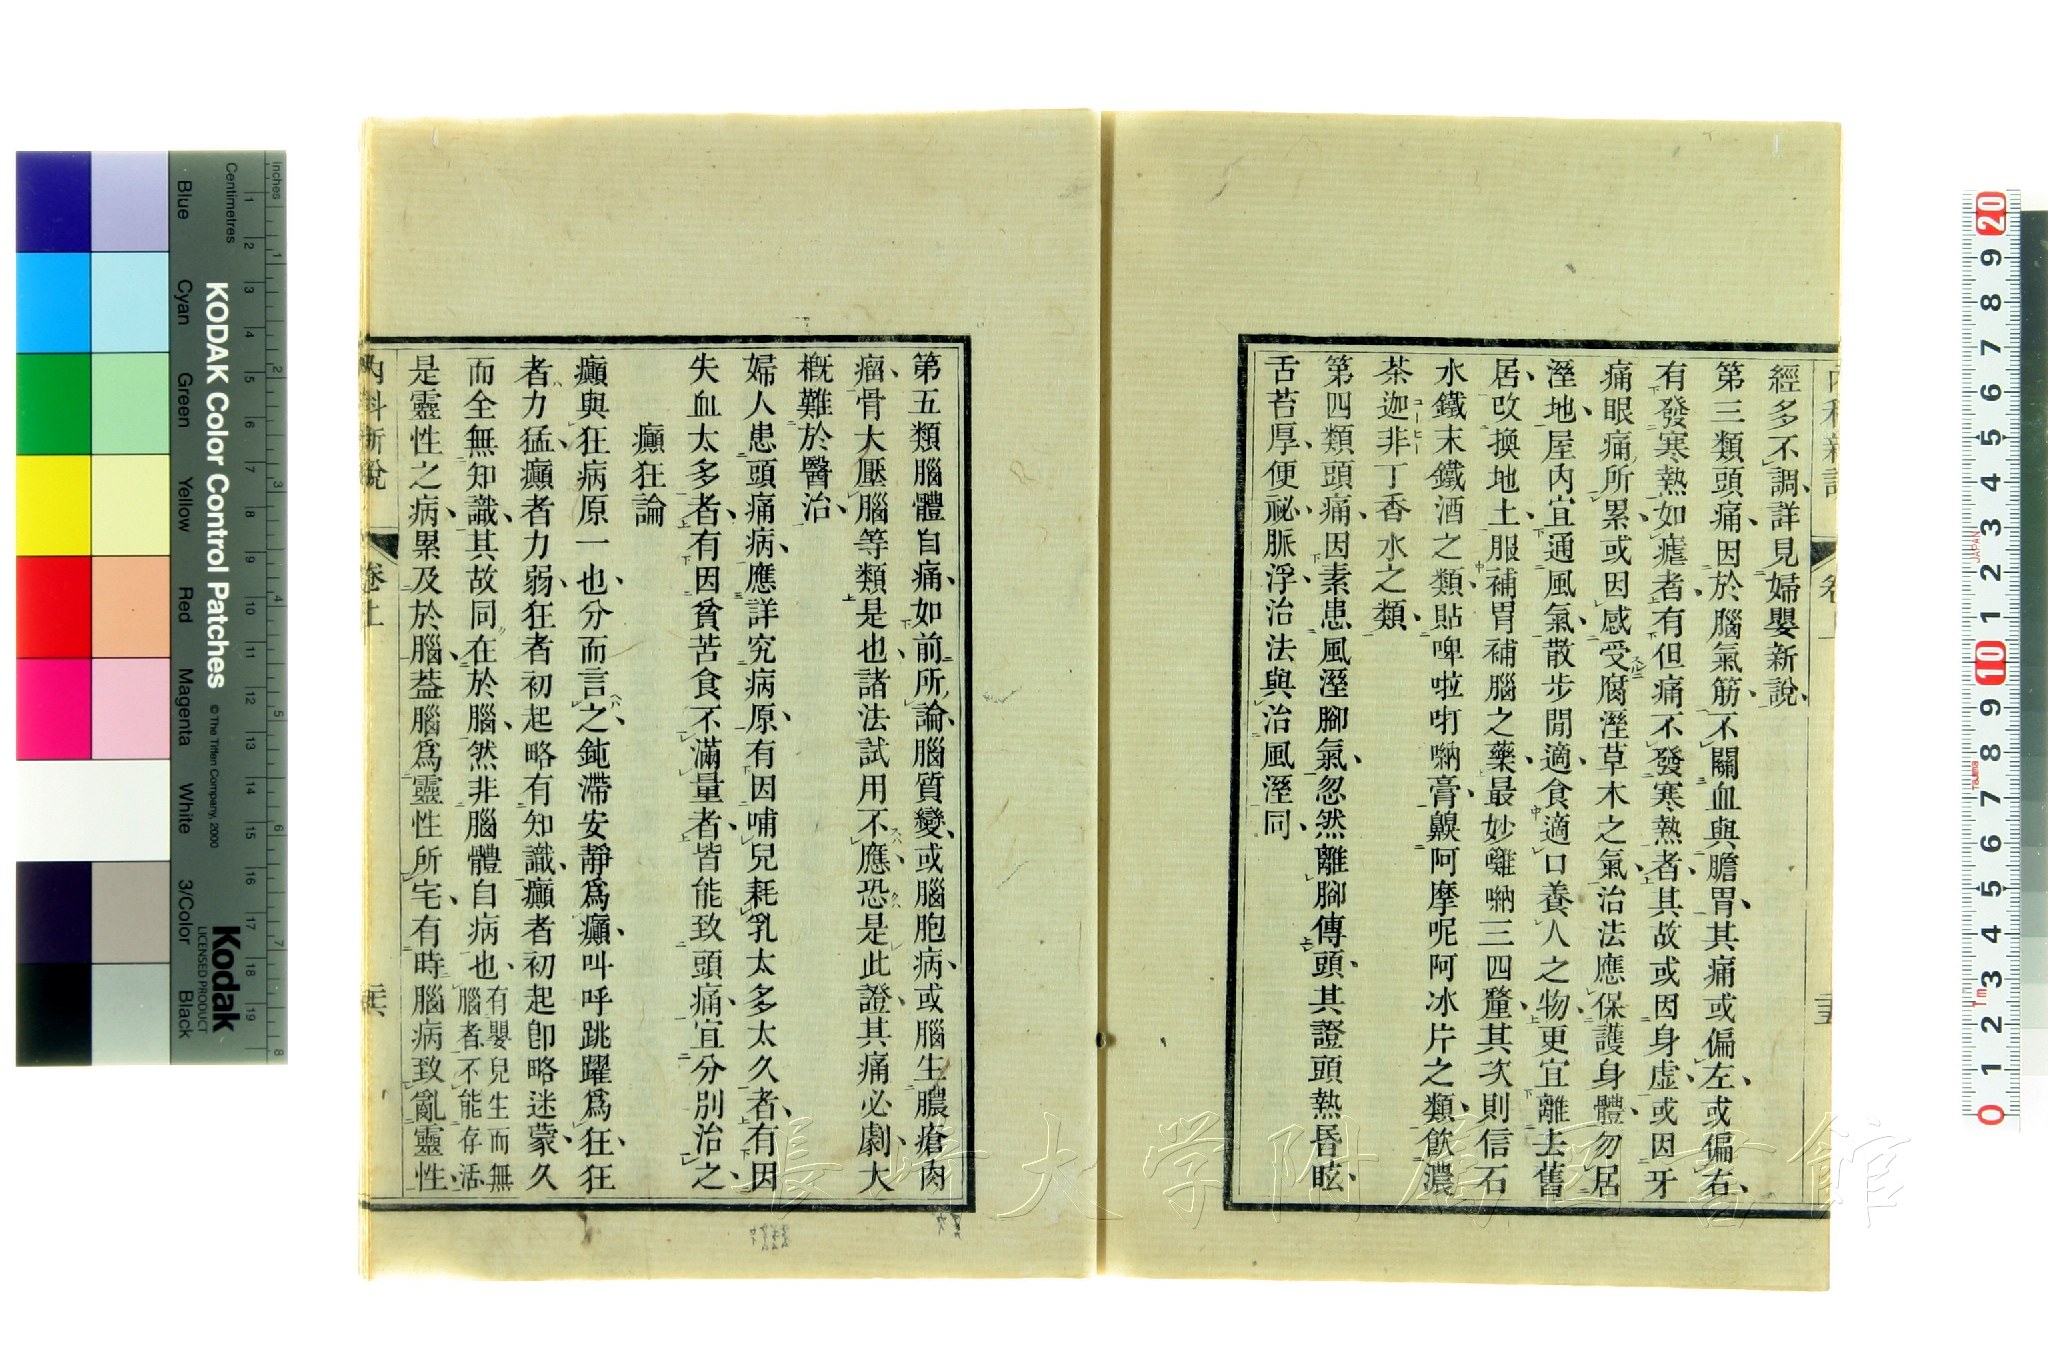 內科新說
卷上
經多不調、詳見婦嬰新說、
第三類頭痛、因於腦氣筋、不關血與膽胃、其痛或偏左、或偏右、
有發寒熱如瘧者、有但痛不發寒熱者、其故或因身虛、或因牙
痛眼痛所累、或因感受腐溼草木之氣、治法應保護身體、勿居
溼地、屋內宜通風氣、散步閒適、食適口養人之物、更宜離去舊
居、改換地土、服補胃補腦之藥、最妙囄㘨三四釐、其次則信石
水鐵末鐵酒之類、貼啤啦吀㘨膏、齅阿摩呢阿冰片之類、飲濃
茶迦非丁香水之類、
第四類頭痛、因素患風溼腳氣、忽然離腳傳頭、其證頭熱昏眩、
舌苔厚、便祕、脈浮、治法與治風溼同、
第五類腦體自痛、如前所論、腦質變、或腦胞病、或腦生膿瘡肉
瘤、骨大壓腦等類是也、諸法試用不應、恐是此證、其痛必劇、大
槪難於醫治、
婦人患頭痛病、應詳究病原、有因哺兒耗乳太多太久者、有因
失血太多者、有因貧苦食不滿量者、皆能致頭痛、宜分別治之、
癲狂論
癲與狂病原一也、分而言之、鈍滯安靜爲癲、叫呼跳躍爲狂、狂
者力猛、癲者力弱、狂者初起略有知識、癲者初起卽略迷蒙、久
而全無知識、其故同在於腦、然非腦體自病也、有嬰兒生而無腦者不能存活
是靈性之病、累及於腦、葢腦爲靈性所宅、有時腦病致亂靈性、
內科新說
卷上
長崎大学附属図書館
KODAK Color Control Patches
© The Tiffen Company, 2000
Kodak
LICENSED PRODUCT
Inches
Centimetres
Blue
Cyan
Green
Yellow
Red
Magenta
White
3/Color
Black